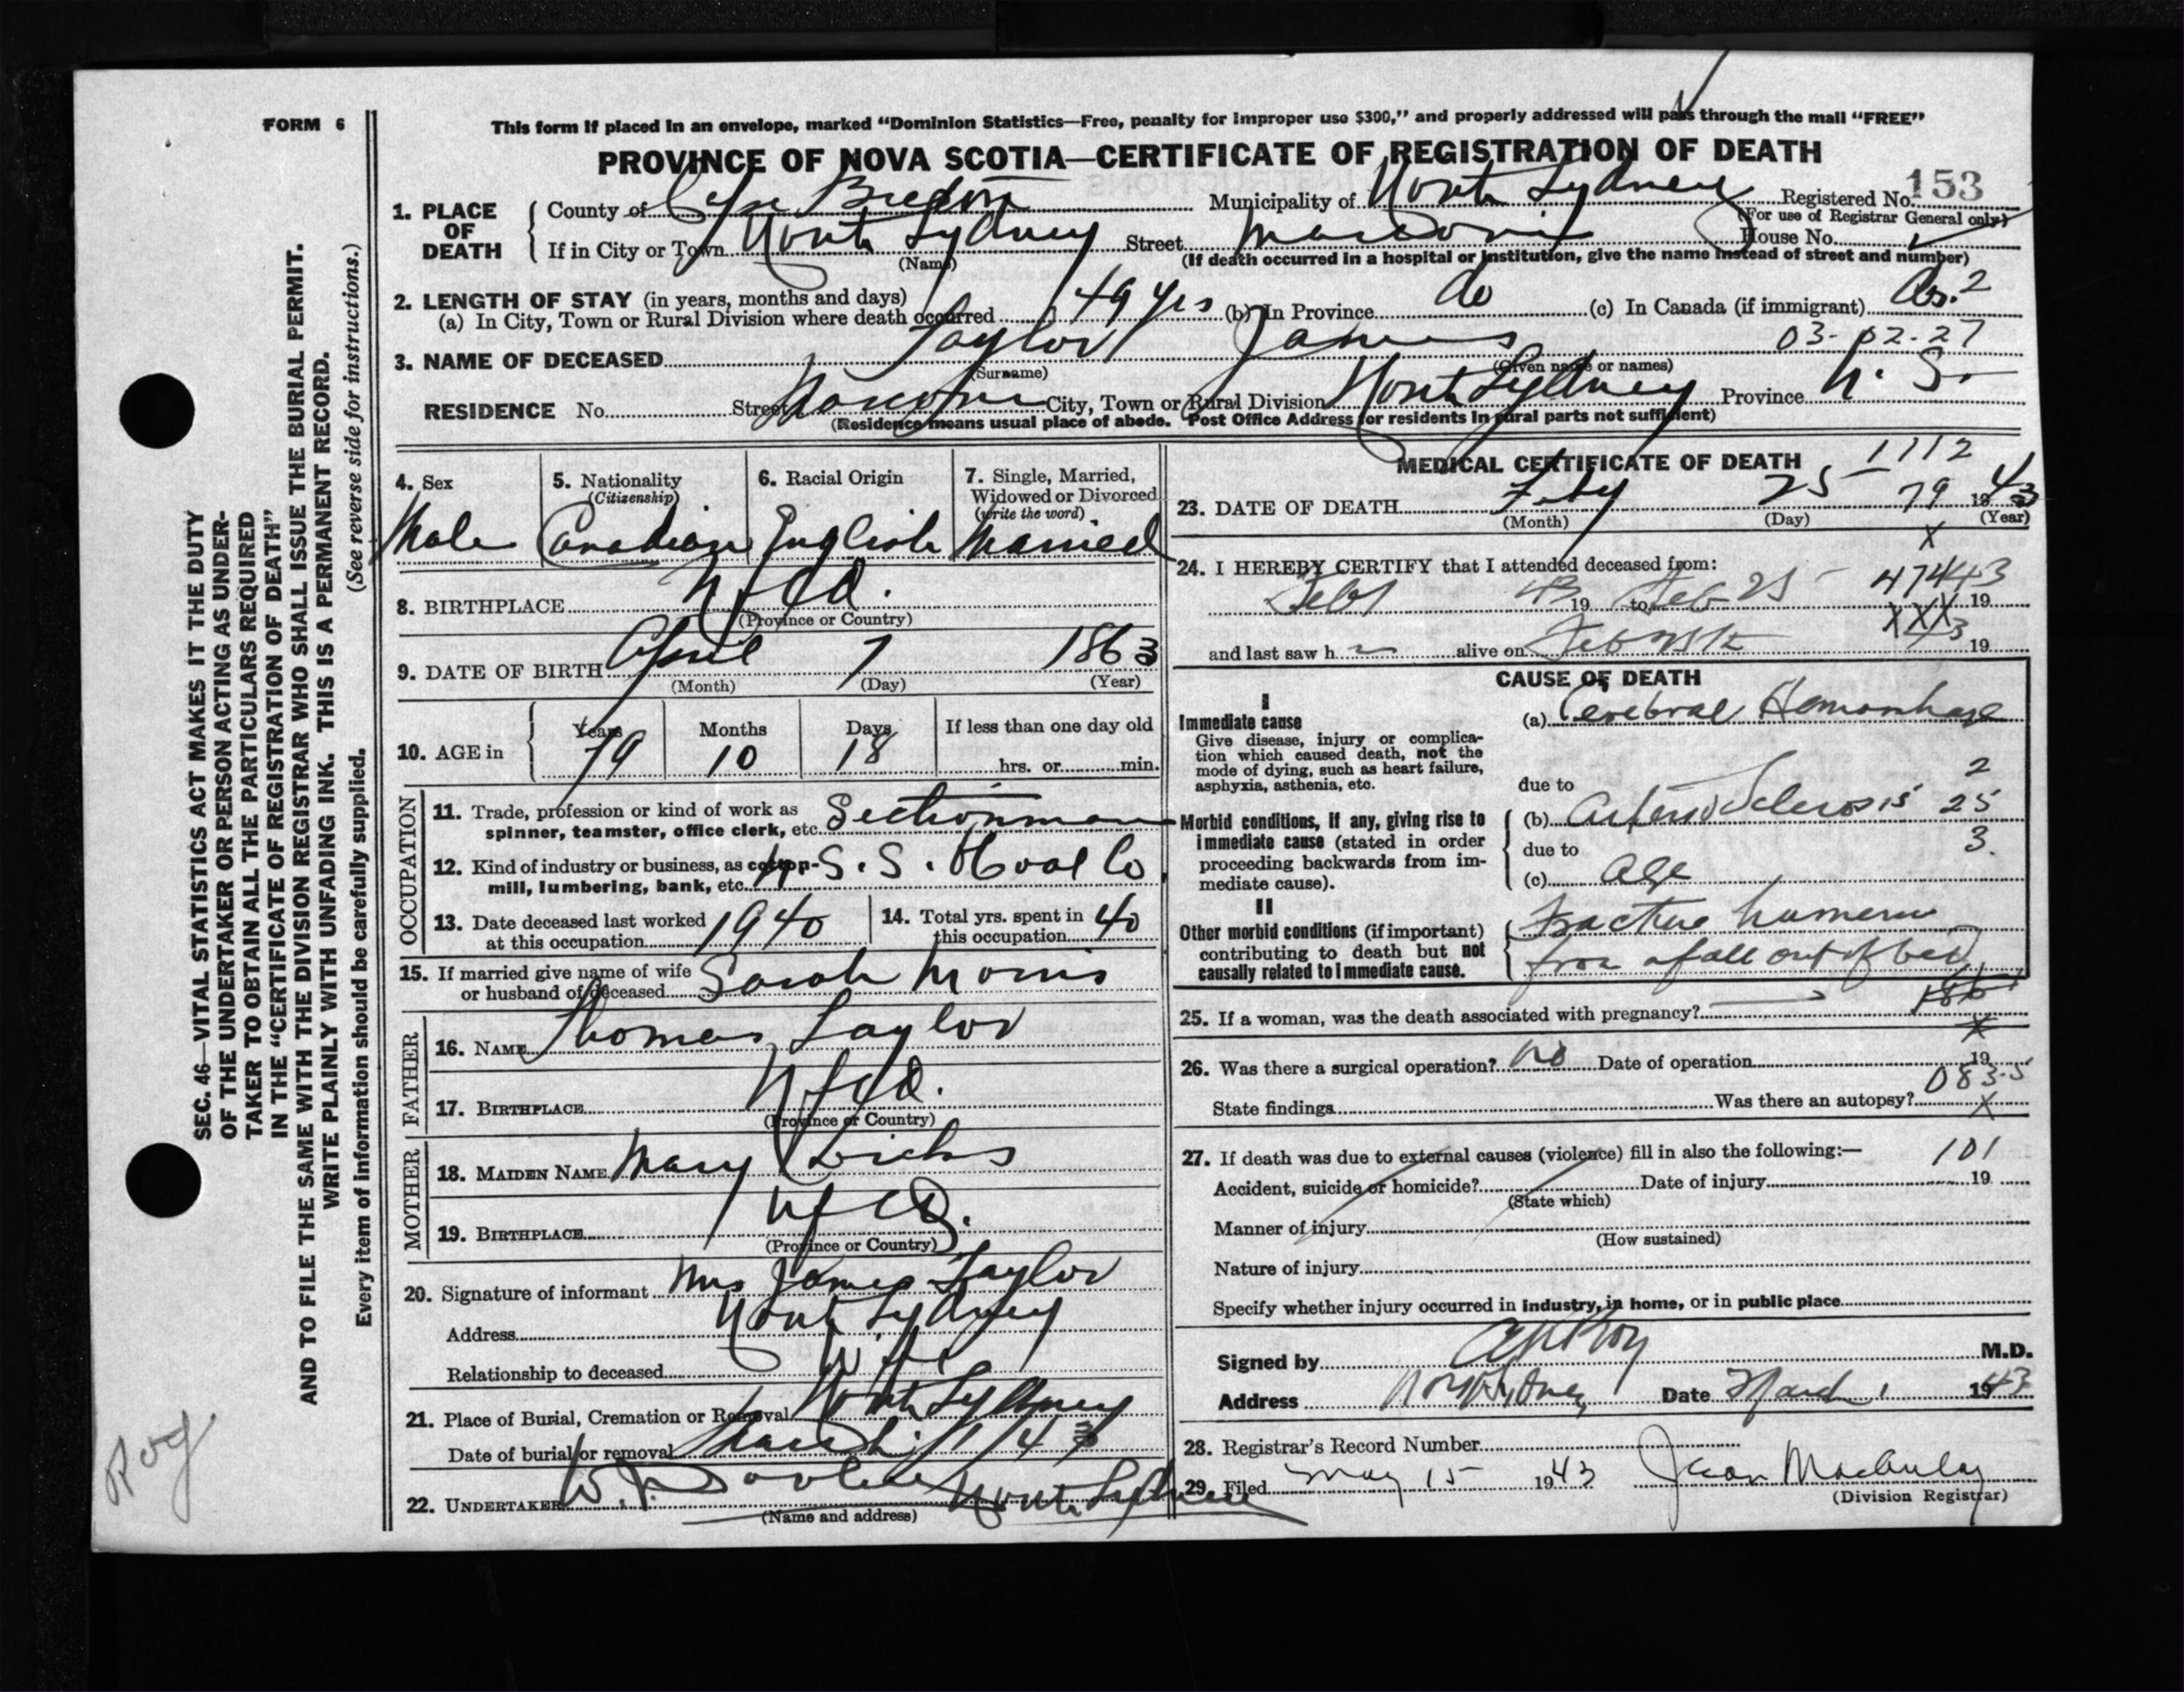 FORM 6
This form if placed in an envelope, marked “Dominion Statistics—Free, penalty for improper use $300,” and properly addressed will pass through the mail “FREE”
PROVINCE OF NOVA SCOTIA—CERTIFICATE OF REGISTRATION OF DEATH
1. PLACE OF DEATH
County of Cape Breton Municipality of North Sydney Registered No. 153
(For use of Registrar General only)
If in City or Town North Sydney Street Marconi House No.
(Name) (If death occurred in a hospital or institution, give the name instead of street and number)
2. LENGTH OF STAY (in years, months and days)
(a) In City, Town or Rural Division where death occurred 49 yrs (b) In Province do (c) In Canada (if immigrant) do. 2
03-02-27
3. NAME OF DECEASED Taylor James
(Surname) (Given name or names)
RESIDENCE No. Street Marconi City, Town or Rural Division North Sydney Province N. S.
(Residence means usual place of abode. Post Office Address for residents in rural parts not sufficient)
4. Sex 5. Nationality (Citizenship) 6. Racial Origin 7. Single, Married, Widowed or Divorced (write the word)
Male Canadian English Married
8. BIRTHPLACE Nfld.
(Province or Country)
9. DATE OF BIRTH April 7 1863
(Month) (Day) (Year)
10. AGE in Years Months Days If less than one day old
79 10 18 hrs. or min.
OCCUPATION
11. Trade, profession or kind of work as
spinner, teamster, office clerk, etc. Sectionman
12. Kind of industry or business, as cotton-
mill, lumbering, bank, etc. N. S. S. & Coal Co
13. Date deceased last worked
at this occupation 1940
14. Total yrs. spent in
this occupation 40
15. If married give name of wife
or husband of deceased Sarah Morris
FATHER
16. NAME Thomas Taylor
17. BIRTHPLACE Nfld.
(Province or Country)
MOTHER
18. MAIDEN NAME Mary Dicks
19. BIRTHPLACE Nfld.
(Province or Country)
20. Signature of informant Mrs James Taylor
Address North Sydney
Relationship to deceased Wife
21. Place of Burial, Cremation or Removal North Sydney
Date of burial or removal March 1/43
22. UNDERTAKER North Sydney
(Name and address)
MEDICAL CERTIFICATE OF DEATH 1112
23. DATE OF DEATH Feby 25 79 1943
(Month) (Day) (Year)
x
24. I HEREBY CERTIFY that I attended deceased from:
Feb 1 43 19 to Feb 25 474 43 19
XXX
and last saw h alive on Feb 25th 43 19
CAUSE OF DEATH
I
Immediate cause
Give disease, injury or complica-
tion which caused death, not the
mode of dying, such as heart failure,
asphyxia, asthenia, etc.
(a) Cerebral Hemorrhage
due to 2
Morbid conditions, if any, giving rise to
immediate cause (stated in order
proceeding backwards from im-
mediate cause).
(b) Arterio Sclerosis 25
due to 3.
(c) Age
II
Other morbid conditions (if important)
contributing to death but not
causally related to immediate cause.
Fracture humerus
from a fall out of bed
186
25. If a woman, was the death associated with pregnancy?
x
26. Was there a surgical operation? no Date of operation 19
083-5
State findings Was there an autopsy?
x
27. If death was due to external causes (violence) fill in also the following:— 101
Accident, suicide or homicide? Date of injury 19
(State which)
Manner of injury
(How sustained)
Nature of injury
Specify whether injury occurred in industry, in home, or in public place
Signed by M.D.
Address North Sydney Date March 1 1943
28. Registrar's Record Number
29. Filed May 15 1943
(Division Registrar)
SEC. 46—VITAL STATISTICS ACT MAKES IT THE DUTY
OF THE UNDERTAKER OR PERSON ACTING AS UNDER-
TAKER TO OBTAIN ALL THE PARTICULARS REQUIRED
IN THE “CERTIFICATE OF REGISTRATION OF DEATH”
AND TO FILE THE SAME WITH THE DIVISION REGISTRAR WHO SHALL ISSUE THE BURIAL PERMIT.
WRITE PLAINLY WITH UNFADING INK. THIS IS A PERMANENT RECORD.
Every item of information should be carefully supplied. (See reverse side for instructions.)